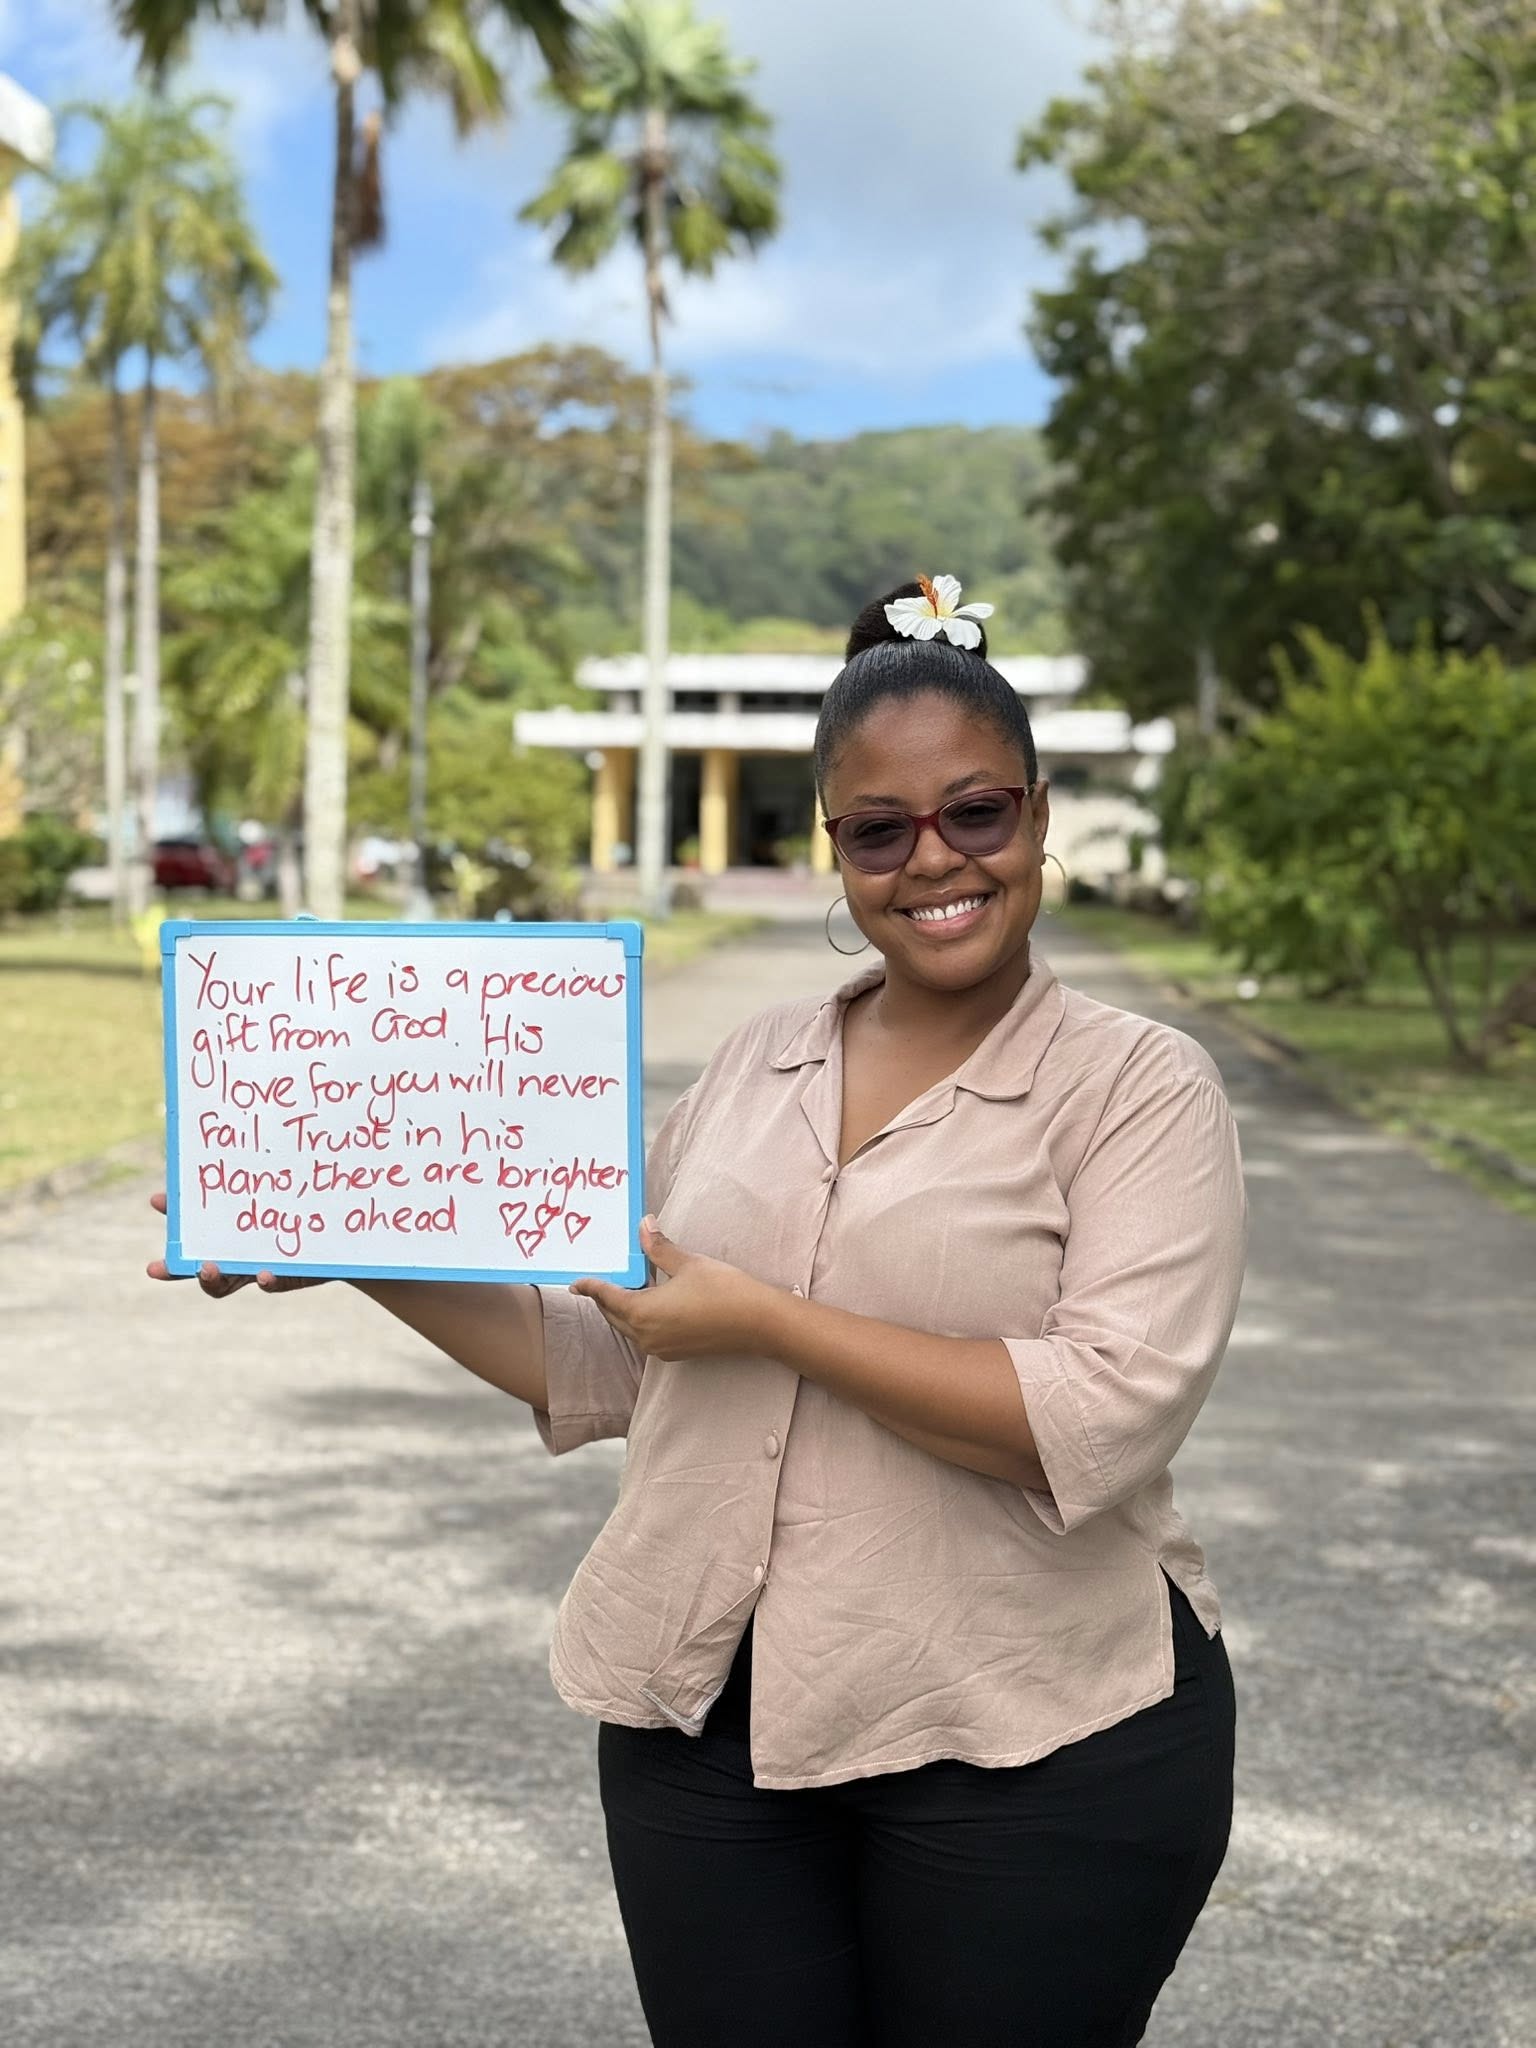 Your life is a precious
gift from God. His
love for you will never
fail. Trust in his
plans, there are brighter
days ahead